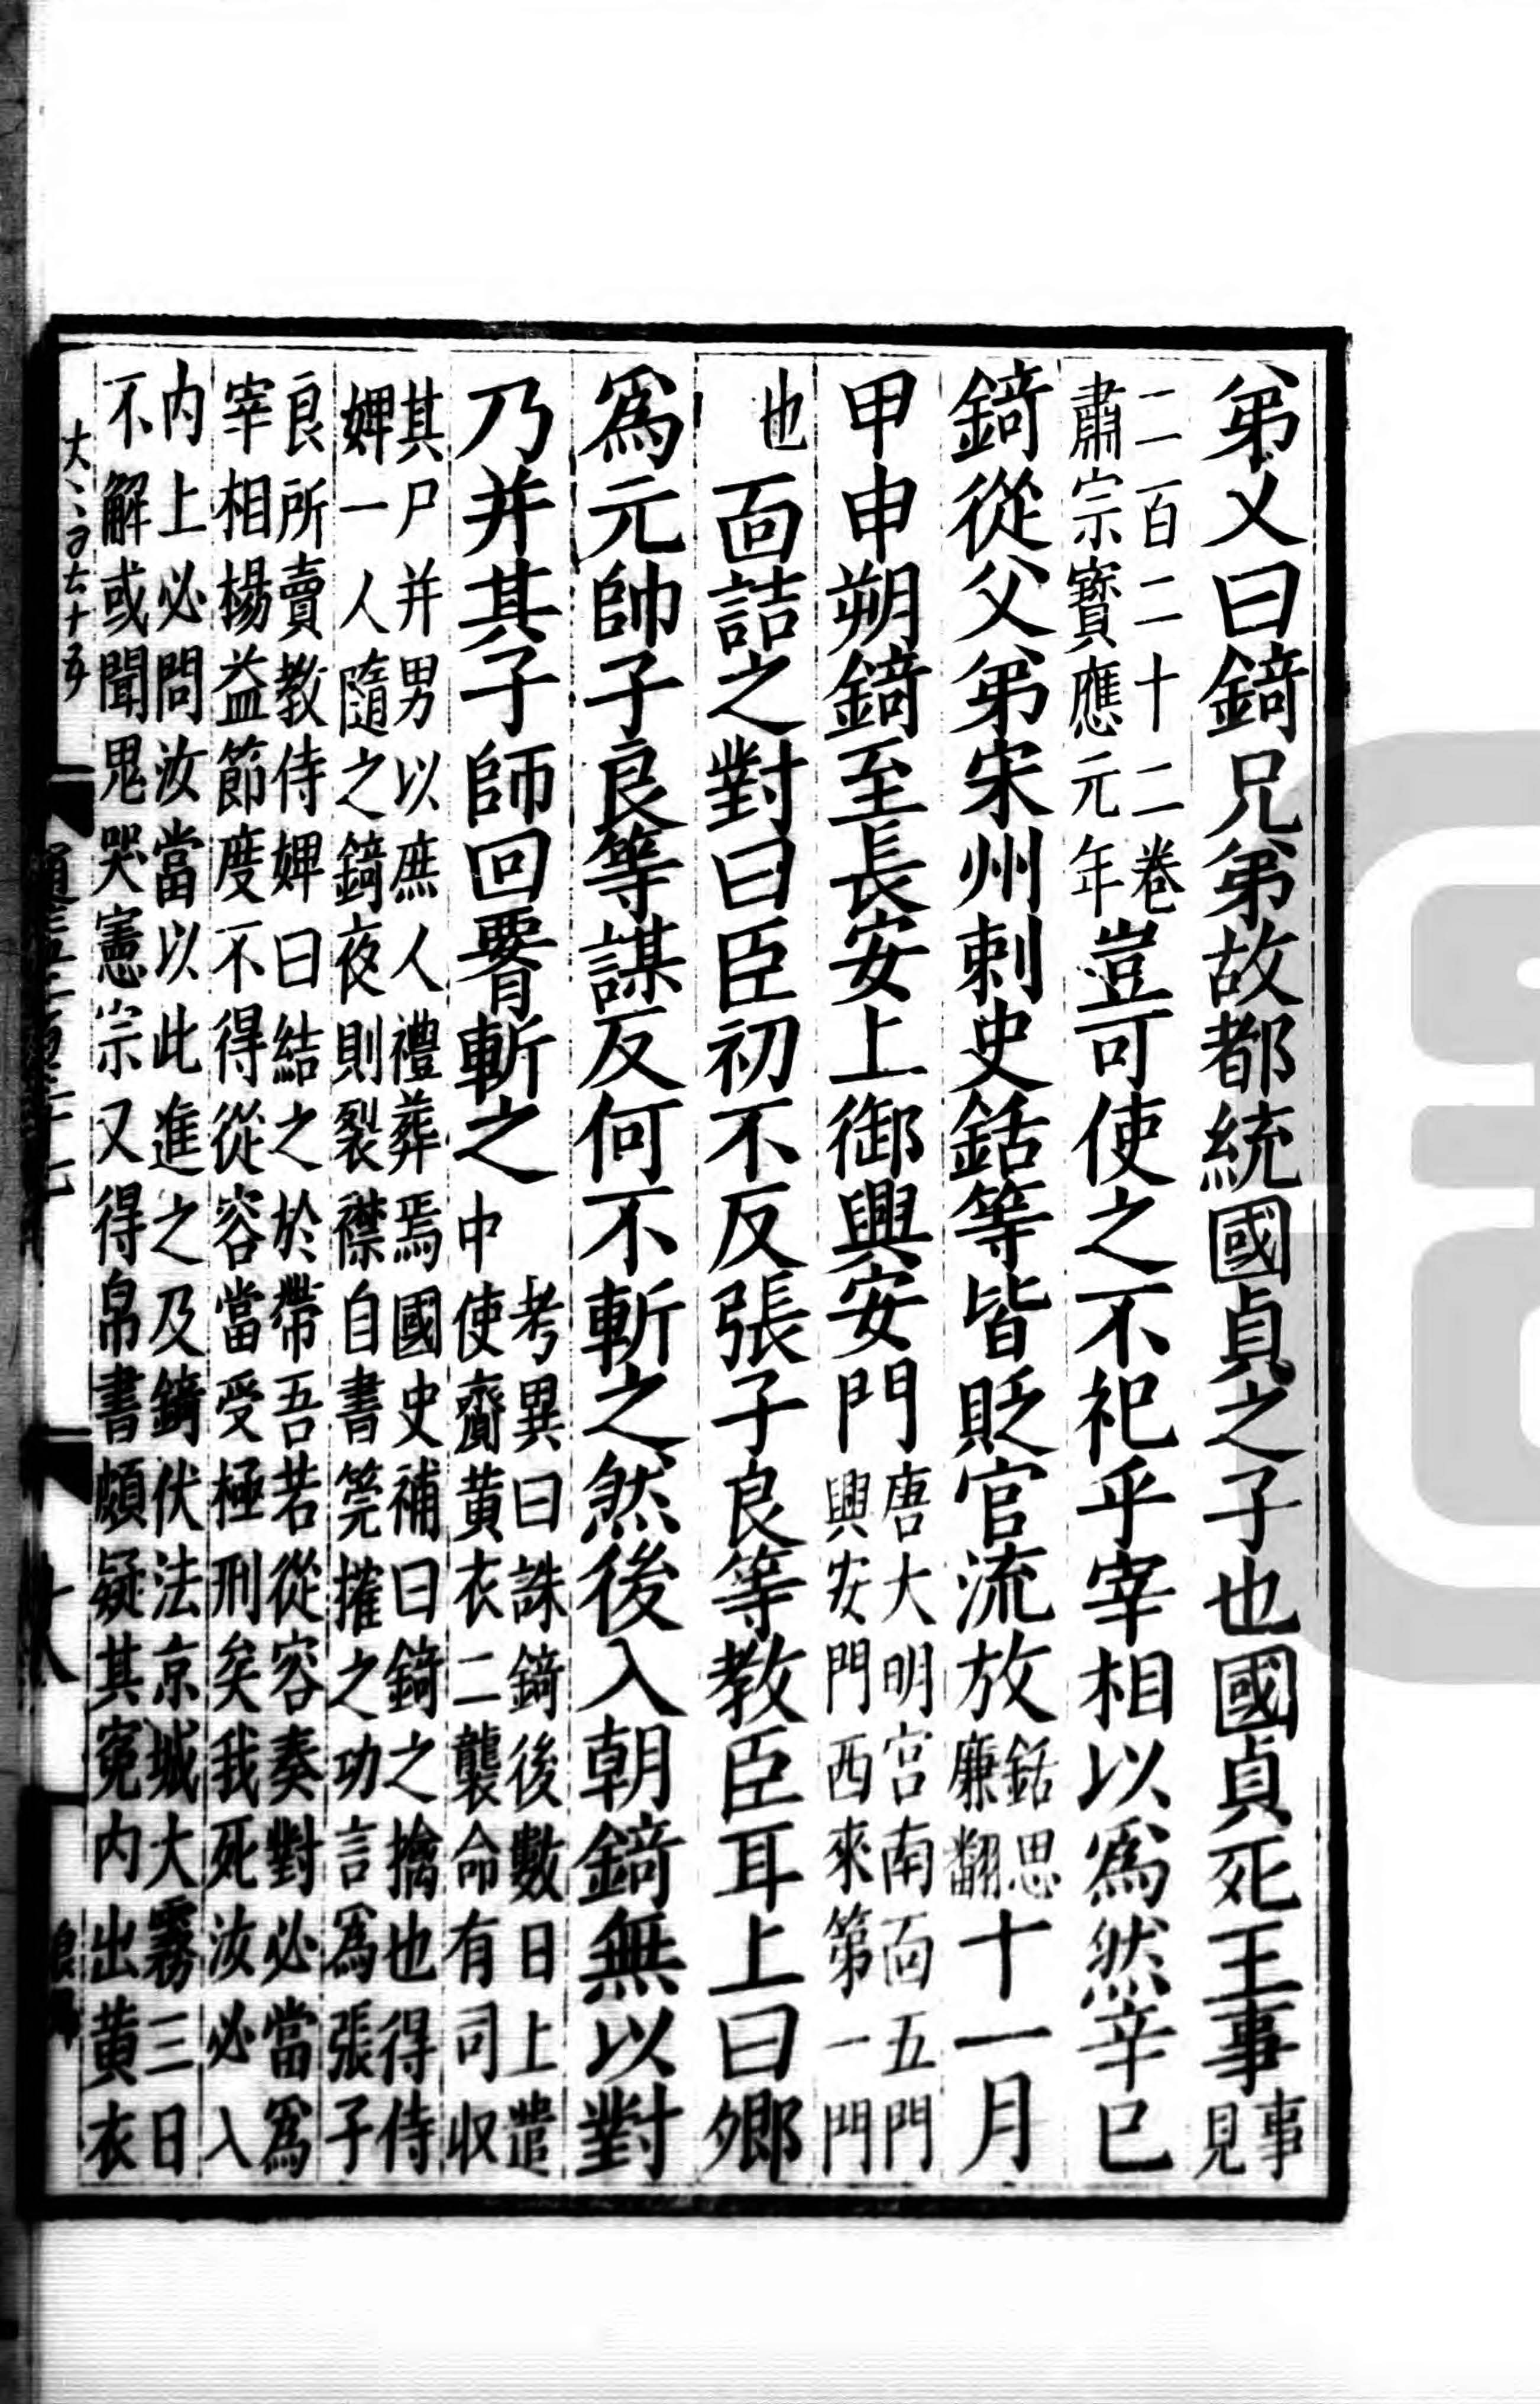 弟乂曰錡兄弟故都統國貞之子也國貞死王事事見
二百二十二卷肅宗寶應元年豈可使之不祀乎宰相以爲然辛巳
錡從父弟宋州刺史銛等皆貶官流放銛思廉翻十一月
甲申朔錡至長安上御興安門唐大明宮南面五門興安門西來第一門
也面詰之對曰臣初不反張子良等教臣耳上曰卿
爲元帥子良等謀反何不斬之然後入朝錡無以對
乃并其子師回署斬之考異曰誅錡後數日上遣中使齎黄衣二襲命有司收
其尸并男以庶人禮葬焉國史補曰錡之擒也得侍婢一人隨之錡夜則裂襟自書筦搉之功言爲張子
良所賣教侍婢曰結之於帶吾若從容奏對必當爲宰相楊益節度不得從容當受極刑矣我死汝必入
内上必問汝當以此進之及錡伏法京城大霧三日不解或聞鬼哭憲宗又得帛書頗疑其寃内出黄衣